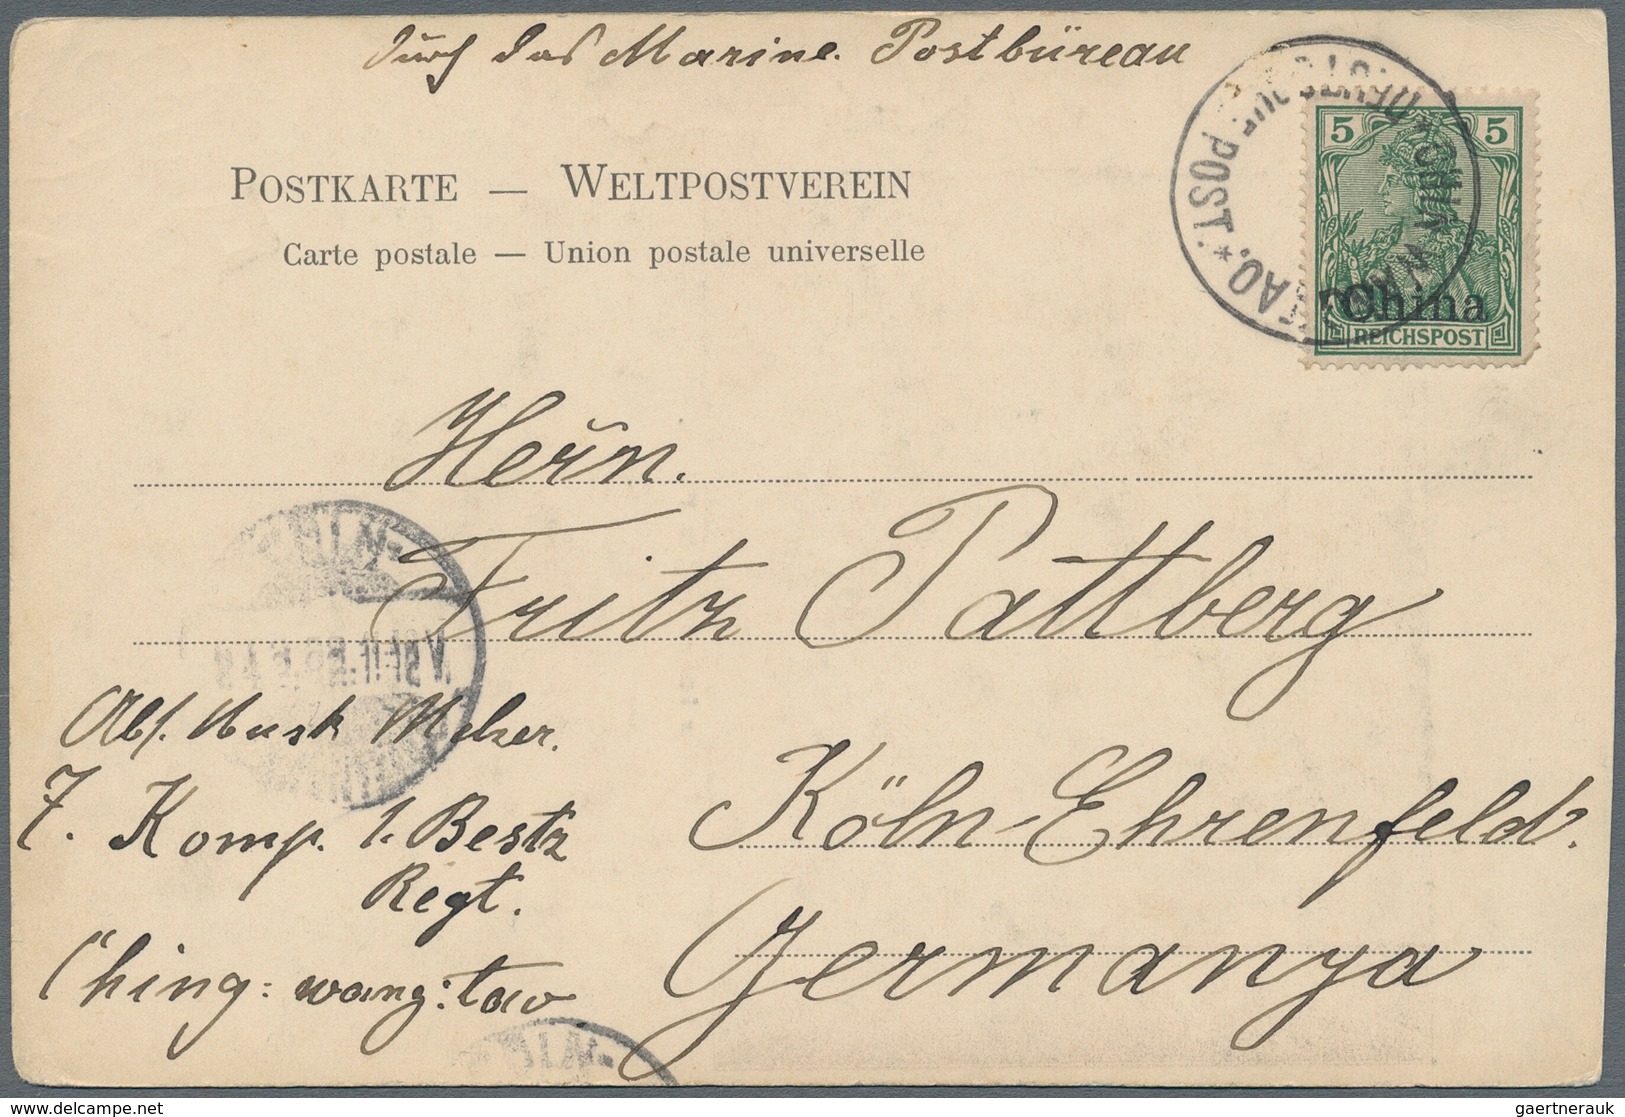 durch das Marine. Postbüreau
POSTKARTE — WELTPOSTVEREIN
Carte postale — Union postale universelle
5 5
China
REICHSPOST
POST.
Herrn.
Fritz Pattberg
Köln-Ehrenfeld.
Germanya
Abs. Musk Melzer.
7. Komp. 1. Bestz
Regt.
Ching: wang: tao.
gaertnerauk